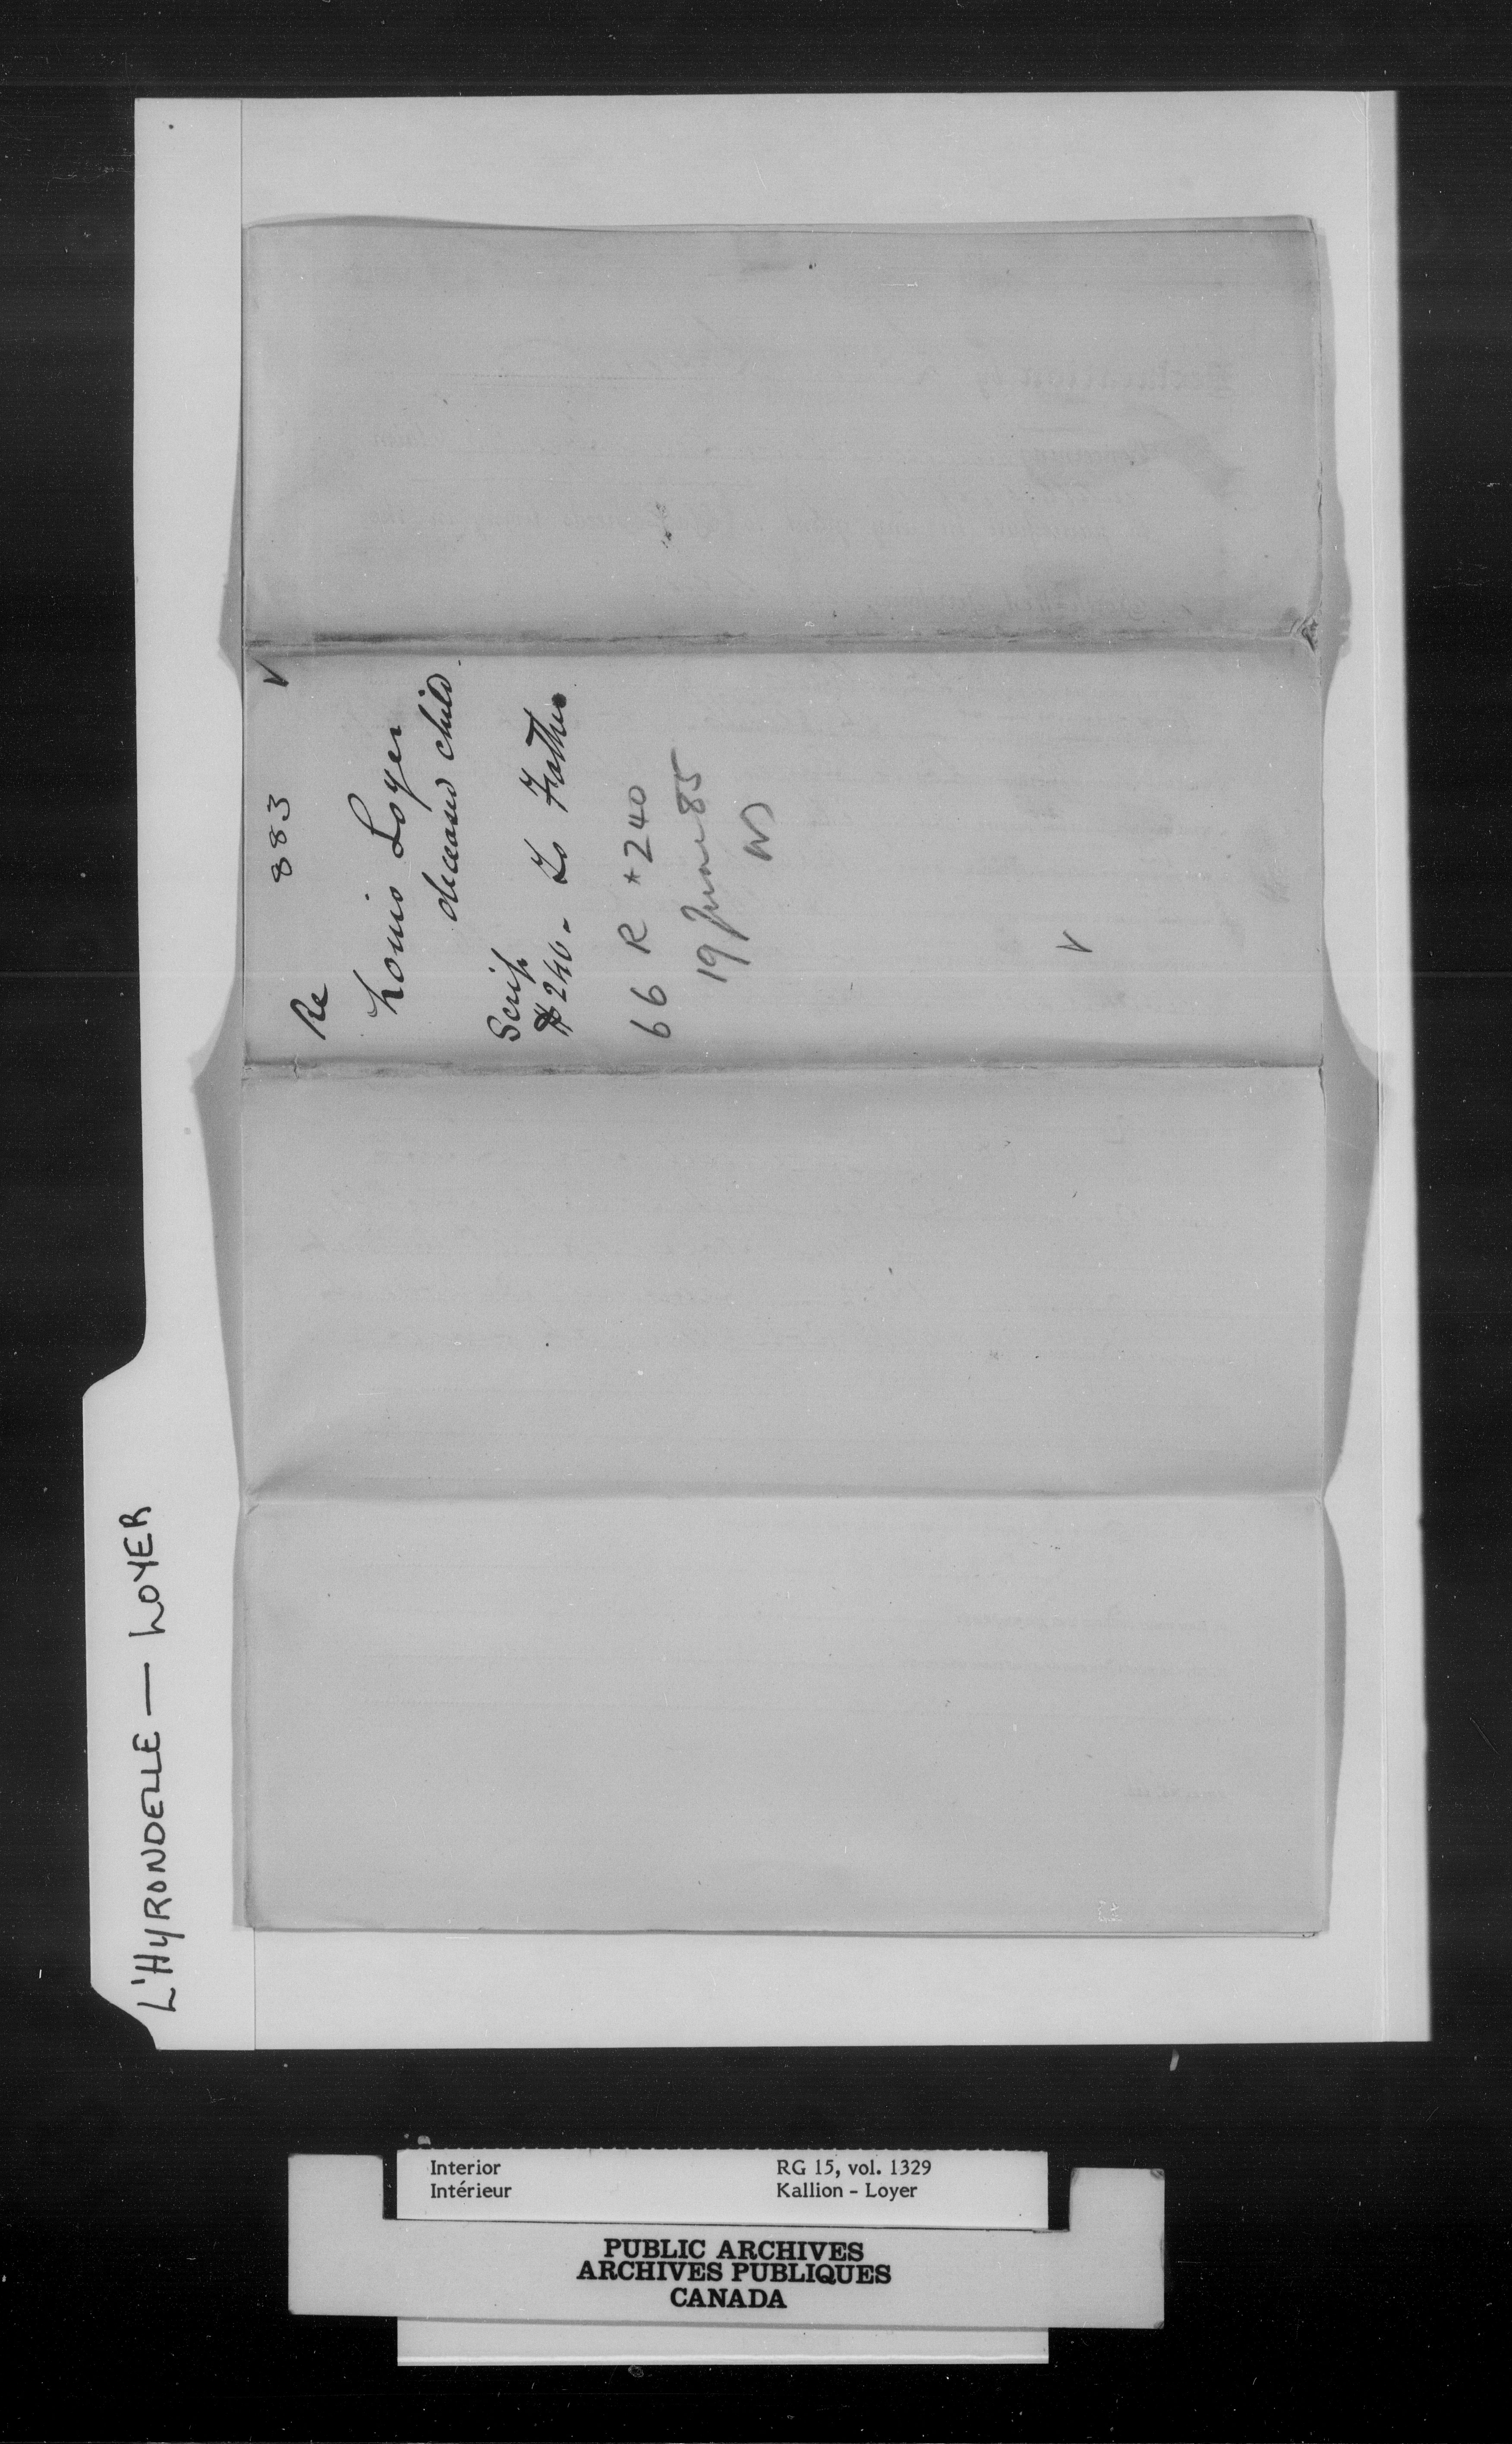 883 ✓
Re
Louis Loyer
deceased child.
Scrip
$240 - to Father
66 R * 240
19 June 85
✓
L'HYRONDELLE — LOYER
Interior
Intérieur
RG 15, vol. 1329
Kallion - Loyer
PUBLIC ARCHIVES
ARCHIVES PUBLIQUES
CANADA